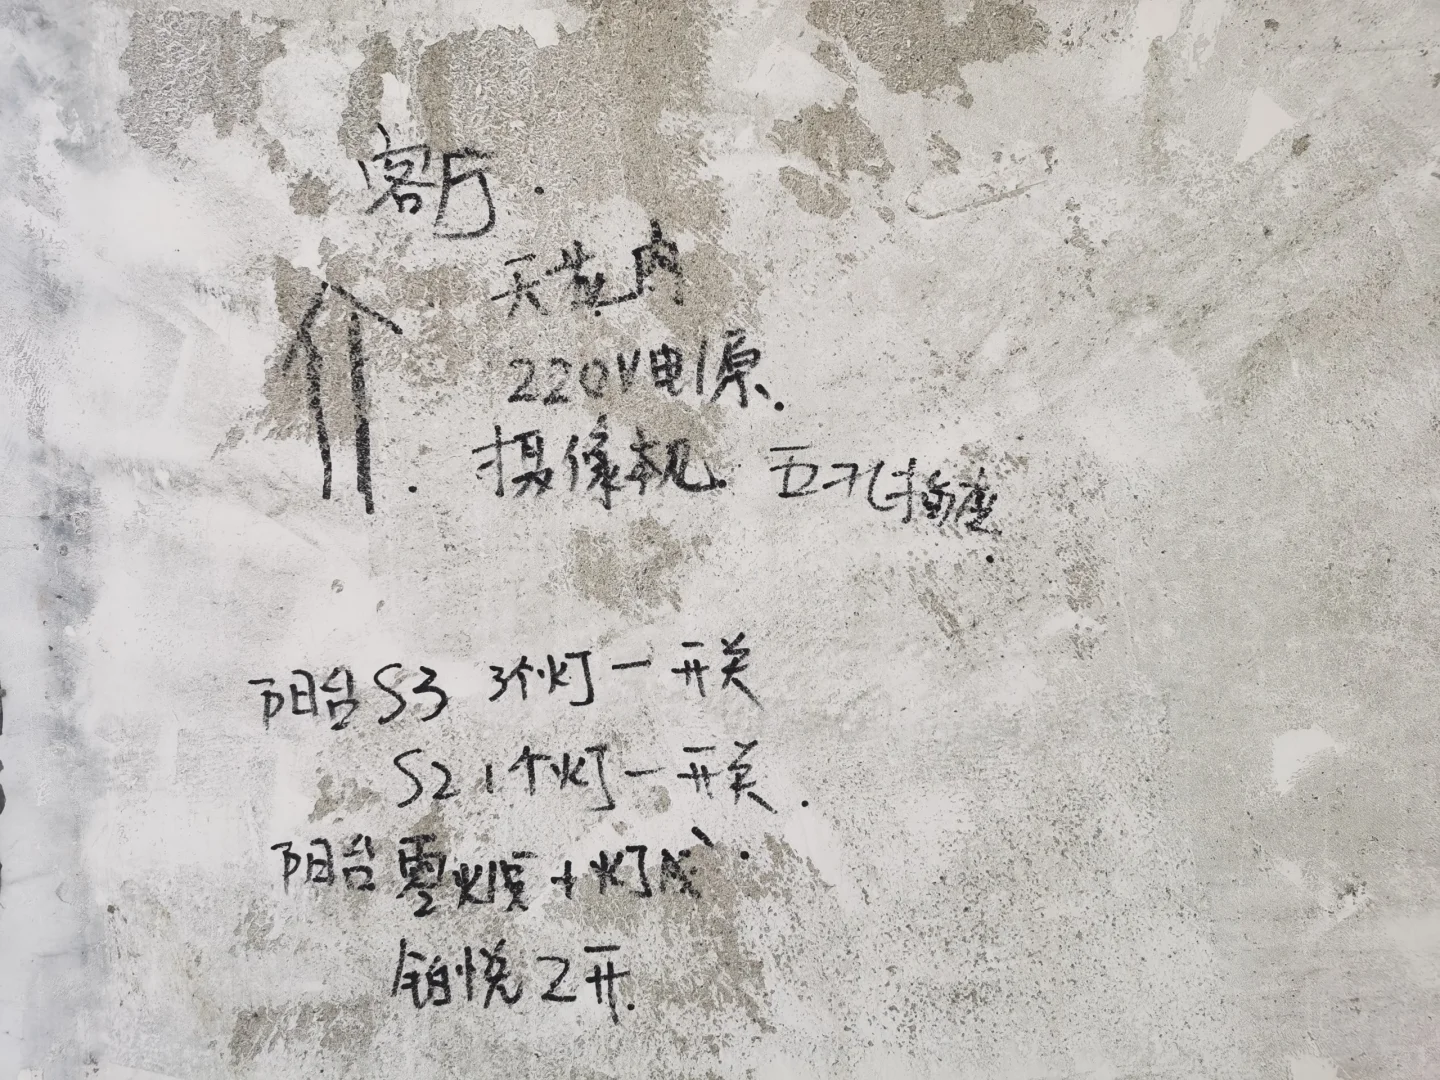 客厅.
天花内
220V电源.
摄像机. 五孔插座.
阳台 S3 3个灯一开关
S2 1个灯一开关.
阳台零火线+灯成.
铂悦2开.